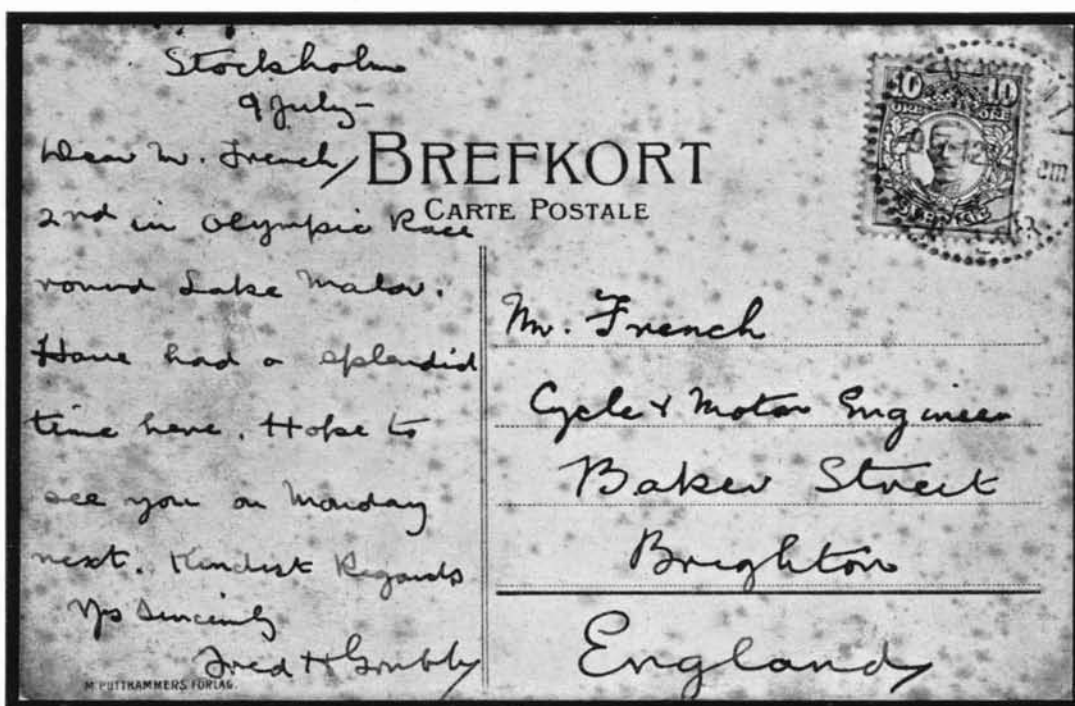 Stockholm
9 July—
Dear Mr. French,
2nd in Olympic Race
round Lake Malar.
Have had a splendid
time here. Hope to
see you on Monday
next. Kindest Regards
Yrs Sincerely
Fred H Grubb
M. PUTTKAMMERS FÖRLAG.
BREFKORT
CARTE POSTALE
10 10
ÖRE ÖRE
SVERIGE
Mr. French
Cycle & Motor Engineer
Baker Street
Brighton
England